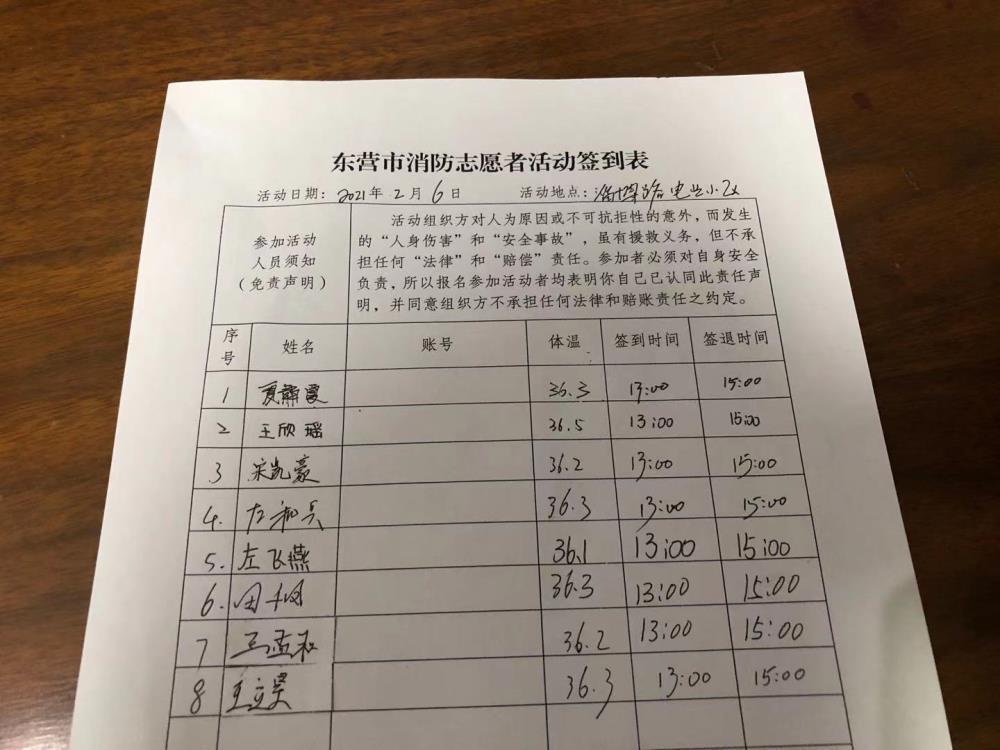 东营市消防志愿者活动签到表
活动日期：2021年2月6日 活动地点：电业小区
参加活动
人员须知
（免责声明）
活动组织方对人为原因或不可抗拒性的意外，而发生
的“人身伤害”和“安全事故”，虽有援救义务，但不承
担任何“法律”和“赔偿”责任。参加者必须对自身安全
负责，所以报名参加活动者均表明你自己已认同此责任声
明，并同意组织方不承担任何法律和赔账责任之约定。
序号 姓名 账号 体温 签到时间 签退时间
1 夏静霞 36.3 13:00 15:00
2 王欣瑶 36.5 13:00 15:00
3 宋凯豪 36.2 13:00 15:00
4. 左和兵 36.3 13:00 15:00
5. 左飞燕 36.1 13:00 15:00
6. 36.3 13:00 15:00
7 36.2 13:00 15:00
8 王立昊 36.3 13:00 15:00